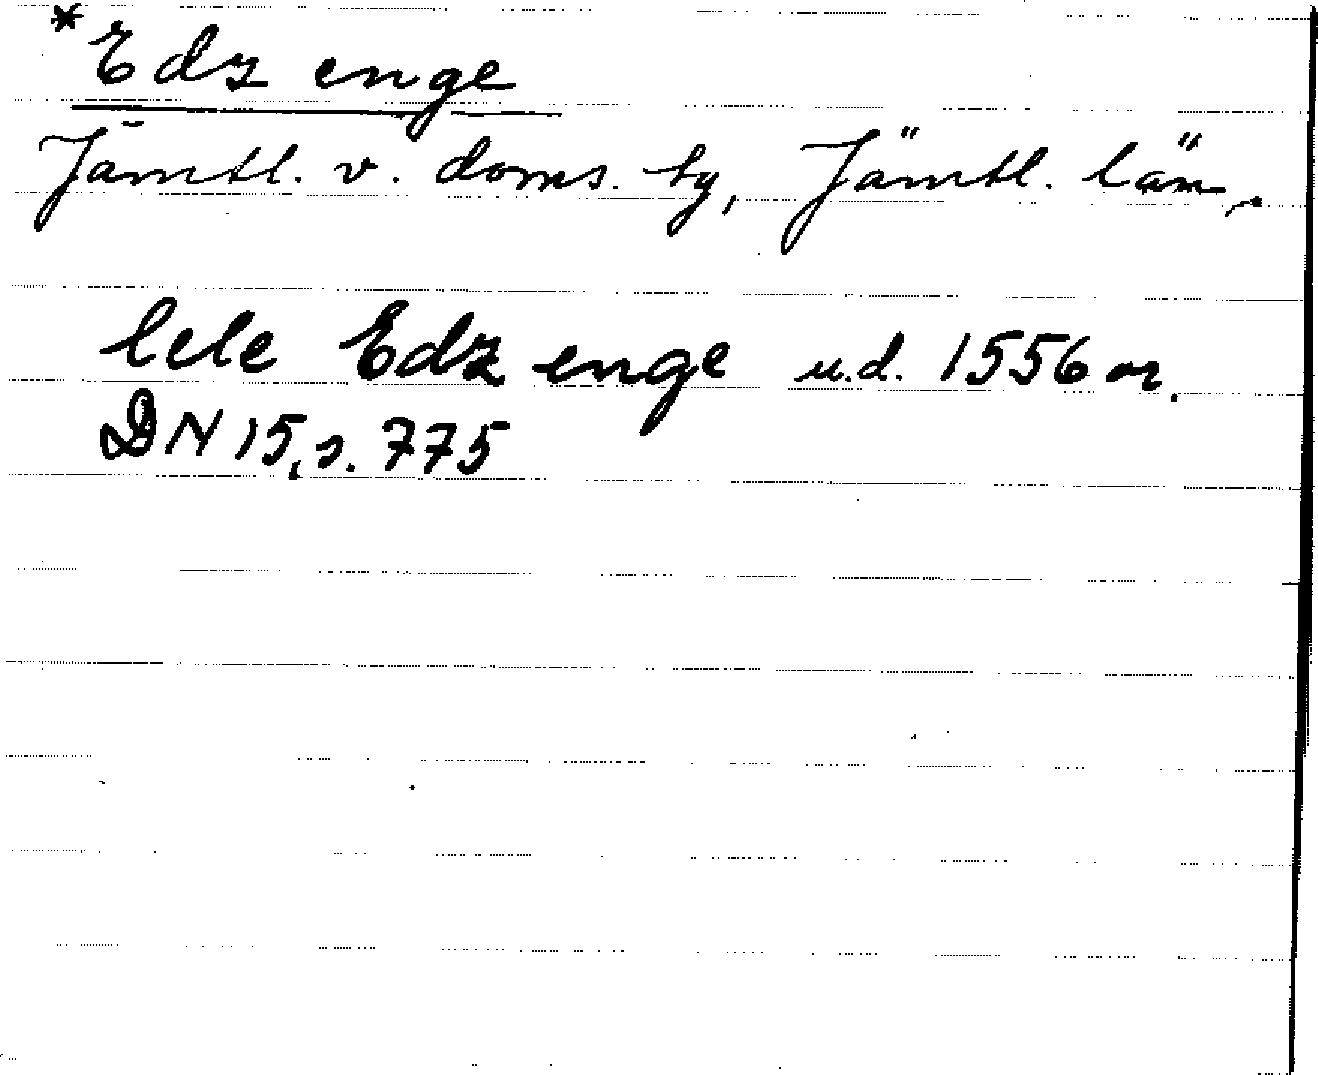 *Edz enge
Jämtl. v. doms. hg, Jämtl. län.
lele Edz enge u.d. 1556 or.
DN 15, s. 775